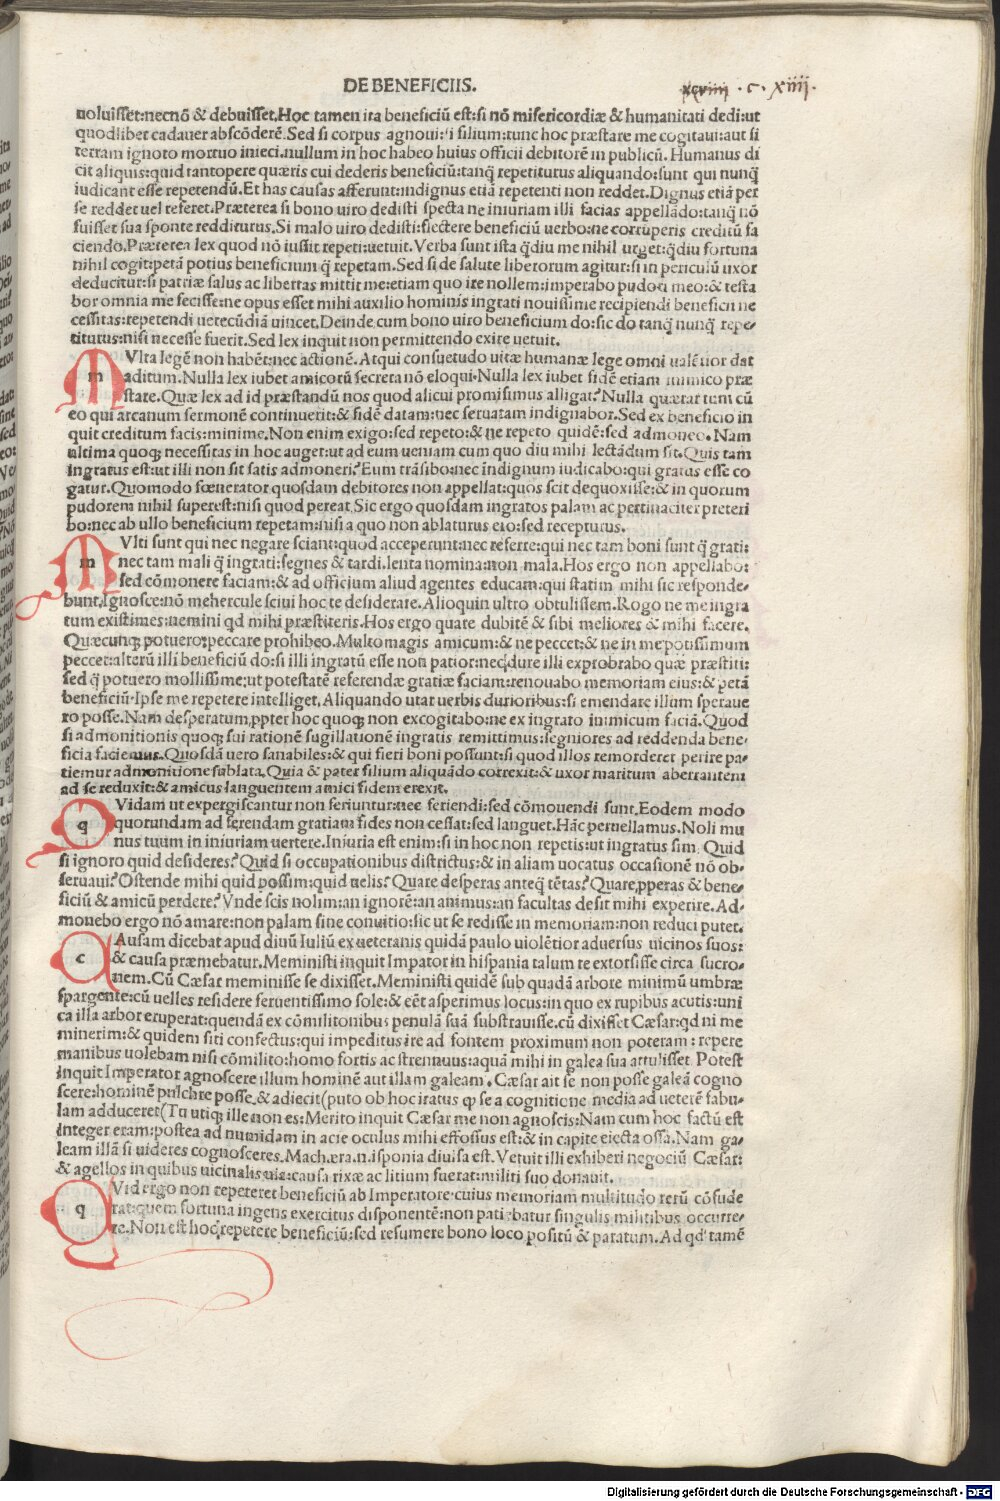 DE BENEFICIIS.
xcviiii · c · xiiij.
noluisset:necnõ & debuisset.Hoc tamen ita beneficiũ est:si nõ misericordiæ & humanitati dedi:ut
quodlibet cadauer abscõderẽ.Sed si corpus agnoui:si filium:tunc hoc præstare me cogitaui:aut si
terram ignoto mortuo inieci.nullum in hoc habeo huius officii debitorẽ in publicũ.Humanus di
cit aliquis:quid tantopere quæris cui dederis beneficiũ:tanq̃ repetiturus aliquando:sunt qui nunq̃
iudicant esse repetendũ.Et has causas afferunt:indignus etiã repetenti non reddet.Dignus etiã per
se reddet uel referet.Præterea si bono uiro dedisti specta ne iniuriam illi facias appellãdo:tanq̃ nõ
fuisset sua sponte redditurus.Si malo uiro dedisti:flectere beneficiũ uerbo:ne corruperis creditũ fa
ciendo.Præterea lex quod nõ iussit repeti:uetuit.Verba sunt ista q̃diu me nihil urget:q̃diu fortuna
nihil cogit:petã potius beneficium q̃ repetam.Sed si de salute libetorum agitur:si in periculũ uxor
deducitur:si patriæ salus ac libertas mittit me:etiam quo ire nollem:imperabo pudori meo:& testa
bor omnia me fecisse:ne opus esset mihi auxilio hominis ingrati nouissime recipiendi beneficii ne
cessitas:repetendi uerecũdiã uincet.Deinde cum bono uiro beneficium do:sic do tanq̃ nunq̃ repe-
titurus:nisi necesse fuerit.Sed lex inquit non permittendo exire uetuit.
m Vlta legẽ non habẽt:nec actionẽ.Atqui consuetudo uitæ humanæ lege omni ualẽtior dat
aditum.Nulla lex iubet amicorũ secreta nõ eloqui.Nulla lex iubet fidẽ etiam inimico præ
stare.Quæ lex ad id præstandũ nos quod alicui promisimus alligat?Nulla quærar tum cũ
eo qui arcanum sermonẽ continuerit:& fidẽ datam:nec seruatam indignabor.Sed ex beneficio in
quit creditum facis:minime.Non enim exigo:sed repeto:& ne repeto quidẽ:sed admoneo.Nam
ultima quoq; necessitas in hoc auget:ut ad eum ueniam cum quo diu mihi lectãdum sit.Quis tam
ingratus est:ut illi non sit satis admoneri?Eum trãsibo:nec ĩndignum iudicabo:qui gratus esse co
gatur.Quomodo fœnerator quosdam debitores non appellat:quos scit dequoxisse:& in quorum
pudorem nihil superest:nisi quod pereat.Sic ergo quosdam ingratos palam ac pertinaciter preteri
bo:nec ab ullo beneficium repetam:nisi a quo non ablaturus ero:sed recepturus.
m Vlti sunt qui nec negare sciant:quod acceperunt:nec referre:qui nec tam boni sunt q̃ grati:
nec tam mali q̃ ingrati:segnes & tardi.lenta nomina:non mala.Hos ergo non appellabo:
sed cõmonere faciam:& ad officium aliud agentes educam:qui statim mihi sic responde-
bunt.Ignosce:nõ mehercule sciui hoc te desiderate.Alioquin ultro obtulissem.Rogo ne me ingra
tum existimes:nemini qd mihi præstiteris.Hos ergo quare dubitẽ & sibi meliores & mihi facere.
Quæcunq; potuero:peccare prohibeo.Multomagis amicum:& ne peccet:& ne in me potissimum
peccet:alterũ illi beneficiũ do:si illi ingratũ esse non patior:nec dure illi exprobrabo quæ præstiti:
sed q̃ potuero mollissime:ut potestatẽ referendæ gratiæ faciam:renouabo memoriam eius:& petã
beneficiũ.Ipse me repetere intelliget.Aliquando utar uerbis durioribus:si emendare illum speraue
ro posse.Nam desperatum ꝓpter hoc quoq; non excogitabo:ne ex ingrato inimicum faciã.Quod
si admonitionis quoq; sui rationẽ sugillationẽ ingratis remittimus:segniores ad reddenda bene-
ficia faciemus.Quosdã uero sanabiles:& qui fieri boni possunt:si quod illos remorderet perire pa-
tiemur admonitione sublata.Quia & pater filium aliquãdo correxit:& uxor maritum aberrantem
ad se reduxit:& amicus languentem amici fidem erexit.
q Vidam ut expergiscantur non feriuntur:nec feriendi:sed cõmouendi sunt.Eodem modo
quorundam ad ferendam gratiam fides non cessat:sed languet.Hãc peruellamus.Noli mu
nus tuum in iniuriam uertere.Iniuria est enim:si in hoc non repetis:ut ingratus sim.Quid
si ignoro quid desideres?Quid si occupationibus districtus:& in aliam uocatus occasionẽ nõ ob-
seruaui?Ostende mihi quid possim:quid uelis?Quare desperas anteq̃ tẽtas?Quare ꝓperas & bene-
ficiũ & amicũ perdere?Vnde scis nolim:an ignorẽ:an animus:an facultas desit mihi experire.Ad-
monebo ergo nõ amare:non palam sine conuitio:sic ut se redisse in memoriam:non reduci putet.
c Ausam dicebat apud diuũ Iuliũ ex ueteranis quidã paulo uiolẽtior aduersus uicinos suos:
& causa præmebatur.Meministi inquit Impator in hispania talum te extorsisse circa sucro-
nem.Cũ Cæsar meminisse se dixisset.Meministi quidẽ sub quadã arbore minimũ umbræ
spargente:cũ uelles residere feruentissimo sole:& eẽt asperimus locus:in quo ex rupibus acutis:uni
ca illa arbor eruperat:quendã ex cõmilitonibus penulã suã substrauisse.cũ dixisset Cæsar:qd ni me
minerim:& quidem siti confectus:qui impeditus ire ad fontem proximum non poteram:repere
manibus uolebam nisi cõmilito:homo fortis ac strennuus:aquã mihi in galea sua attulisset.Potest
inquit Imperator agnoscere illum hominẽ aut illam galeam.Cæsar ait se non posse galeã cogno
scere:hominẽ pulchre posse.& adiecit(puto ob hoc iratus qꝫ se a cognitione media ad ueterẽ fabu-
lam adduceret(Tu utiq; ille non es:Merito inquit Cæsar me non agnoscis:Nam cum hoc factũ est
integer eram:postea ad numidam in acie oculus mihi effossus est:& in capite eiecta ossa.Nam ga-
leam illã si uideres cognosceres.Machæra.n.isponia diuisa est.Vetuit illi exhiberi negociũ Cæsar:
& agellos in quibus uicinalis uia:causa rixæ ac litium fuerat:militi suo donauit.
q Vid ergo non repeteret beneficiũ ab Imperatore:cuius memoriam multitudo rerũ cõfude
rat:quem fortuna ingens exercitus disponentẽ:non patiebatur singulis militibus occurre-
re.Non est hoc repetere beneficiũ:sed resumere bono loco positũ & paratum.Ad qd' tamẽ
Digitalisierung gefördert durch die Deutsche Forschungsgemeinschaft - DFG